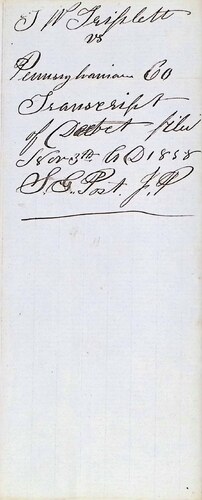 T W Triplett
vs
Pennsylvania Co
Transcript
of Docket filed
Nov 3th A D 1858
S. G. Post. J. P